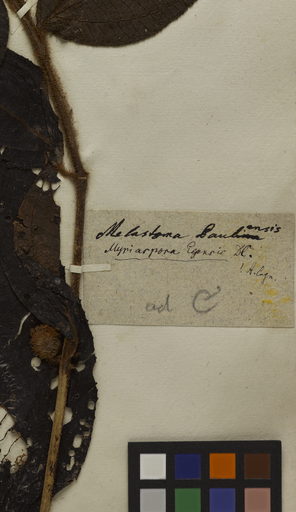 Melastoma Paulinaensis
Myriaspora Egensis DC.
ad C